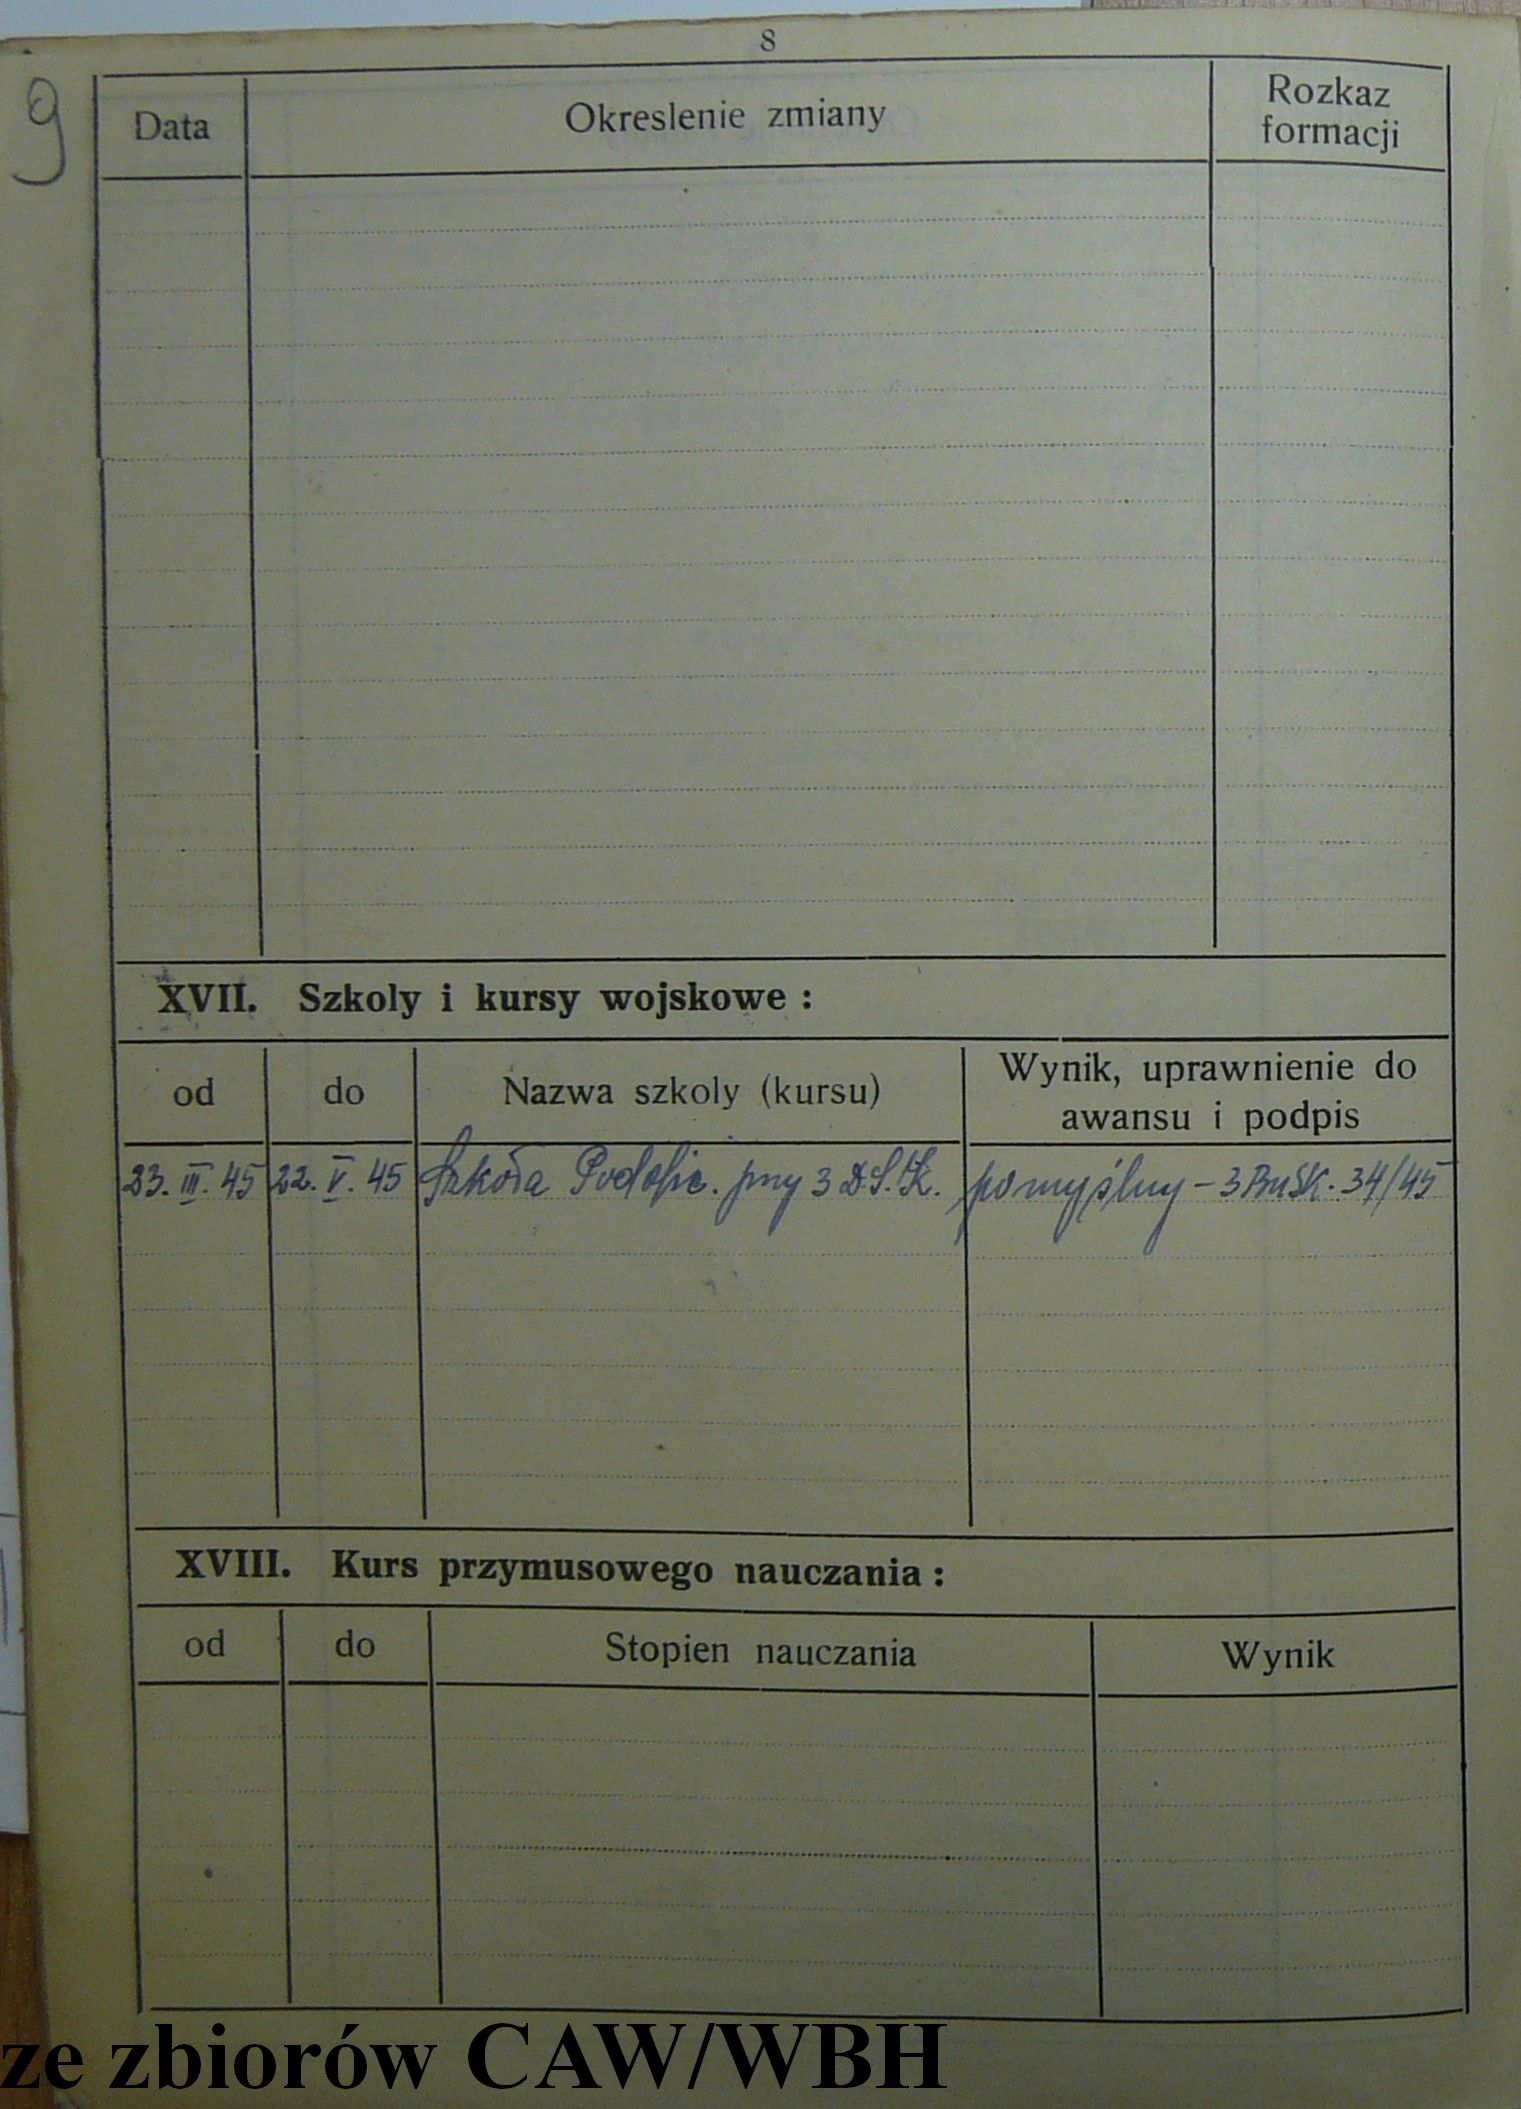 8
9
Data Okreslenie zmiany Rozkaz formacji
XVII. Szkoly i kursy wojskowe :
od do Nazwa szkoly (kursu) Wynik, uprawnienie do awansu i podpis
23. III. 45 22. V. 45 Szkoła Podofic. przy 3 D.S.K. pomyślny – 3 34/45
XVIII. Kurs przymusowego nauczania :
od do Stopien nauczania Wynik
ze zbiorów CAW/WBH